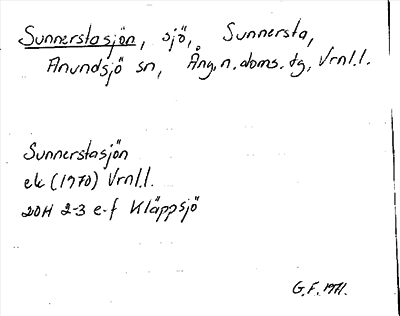 Sunnerstasjön, sjö, Sunnersta,
Anundsjö sn, Ång.n.doms.tg, Vrnl.l.
Sunnerstasjön
ek (1970) Vrnl.l.
20H 2-3 e-f Kläppsjö
G.F. 1971.